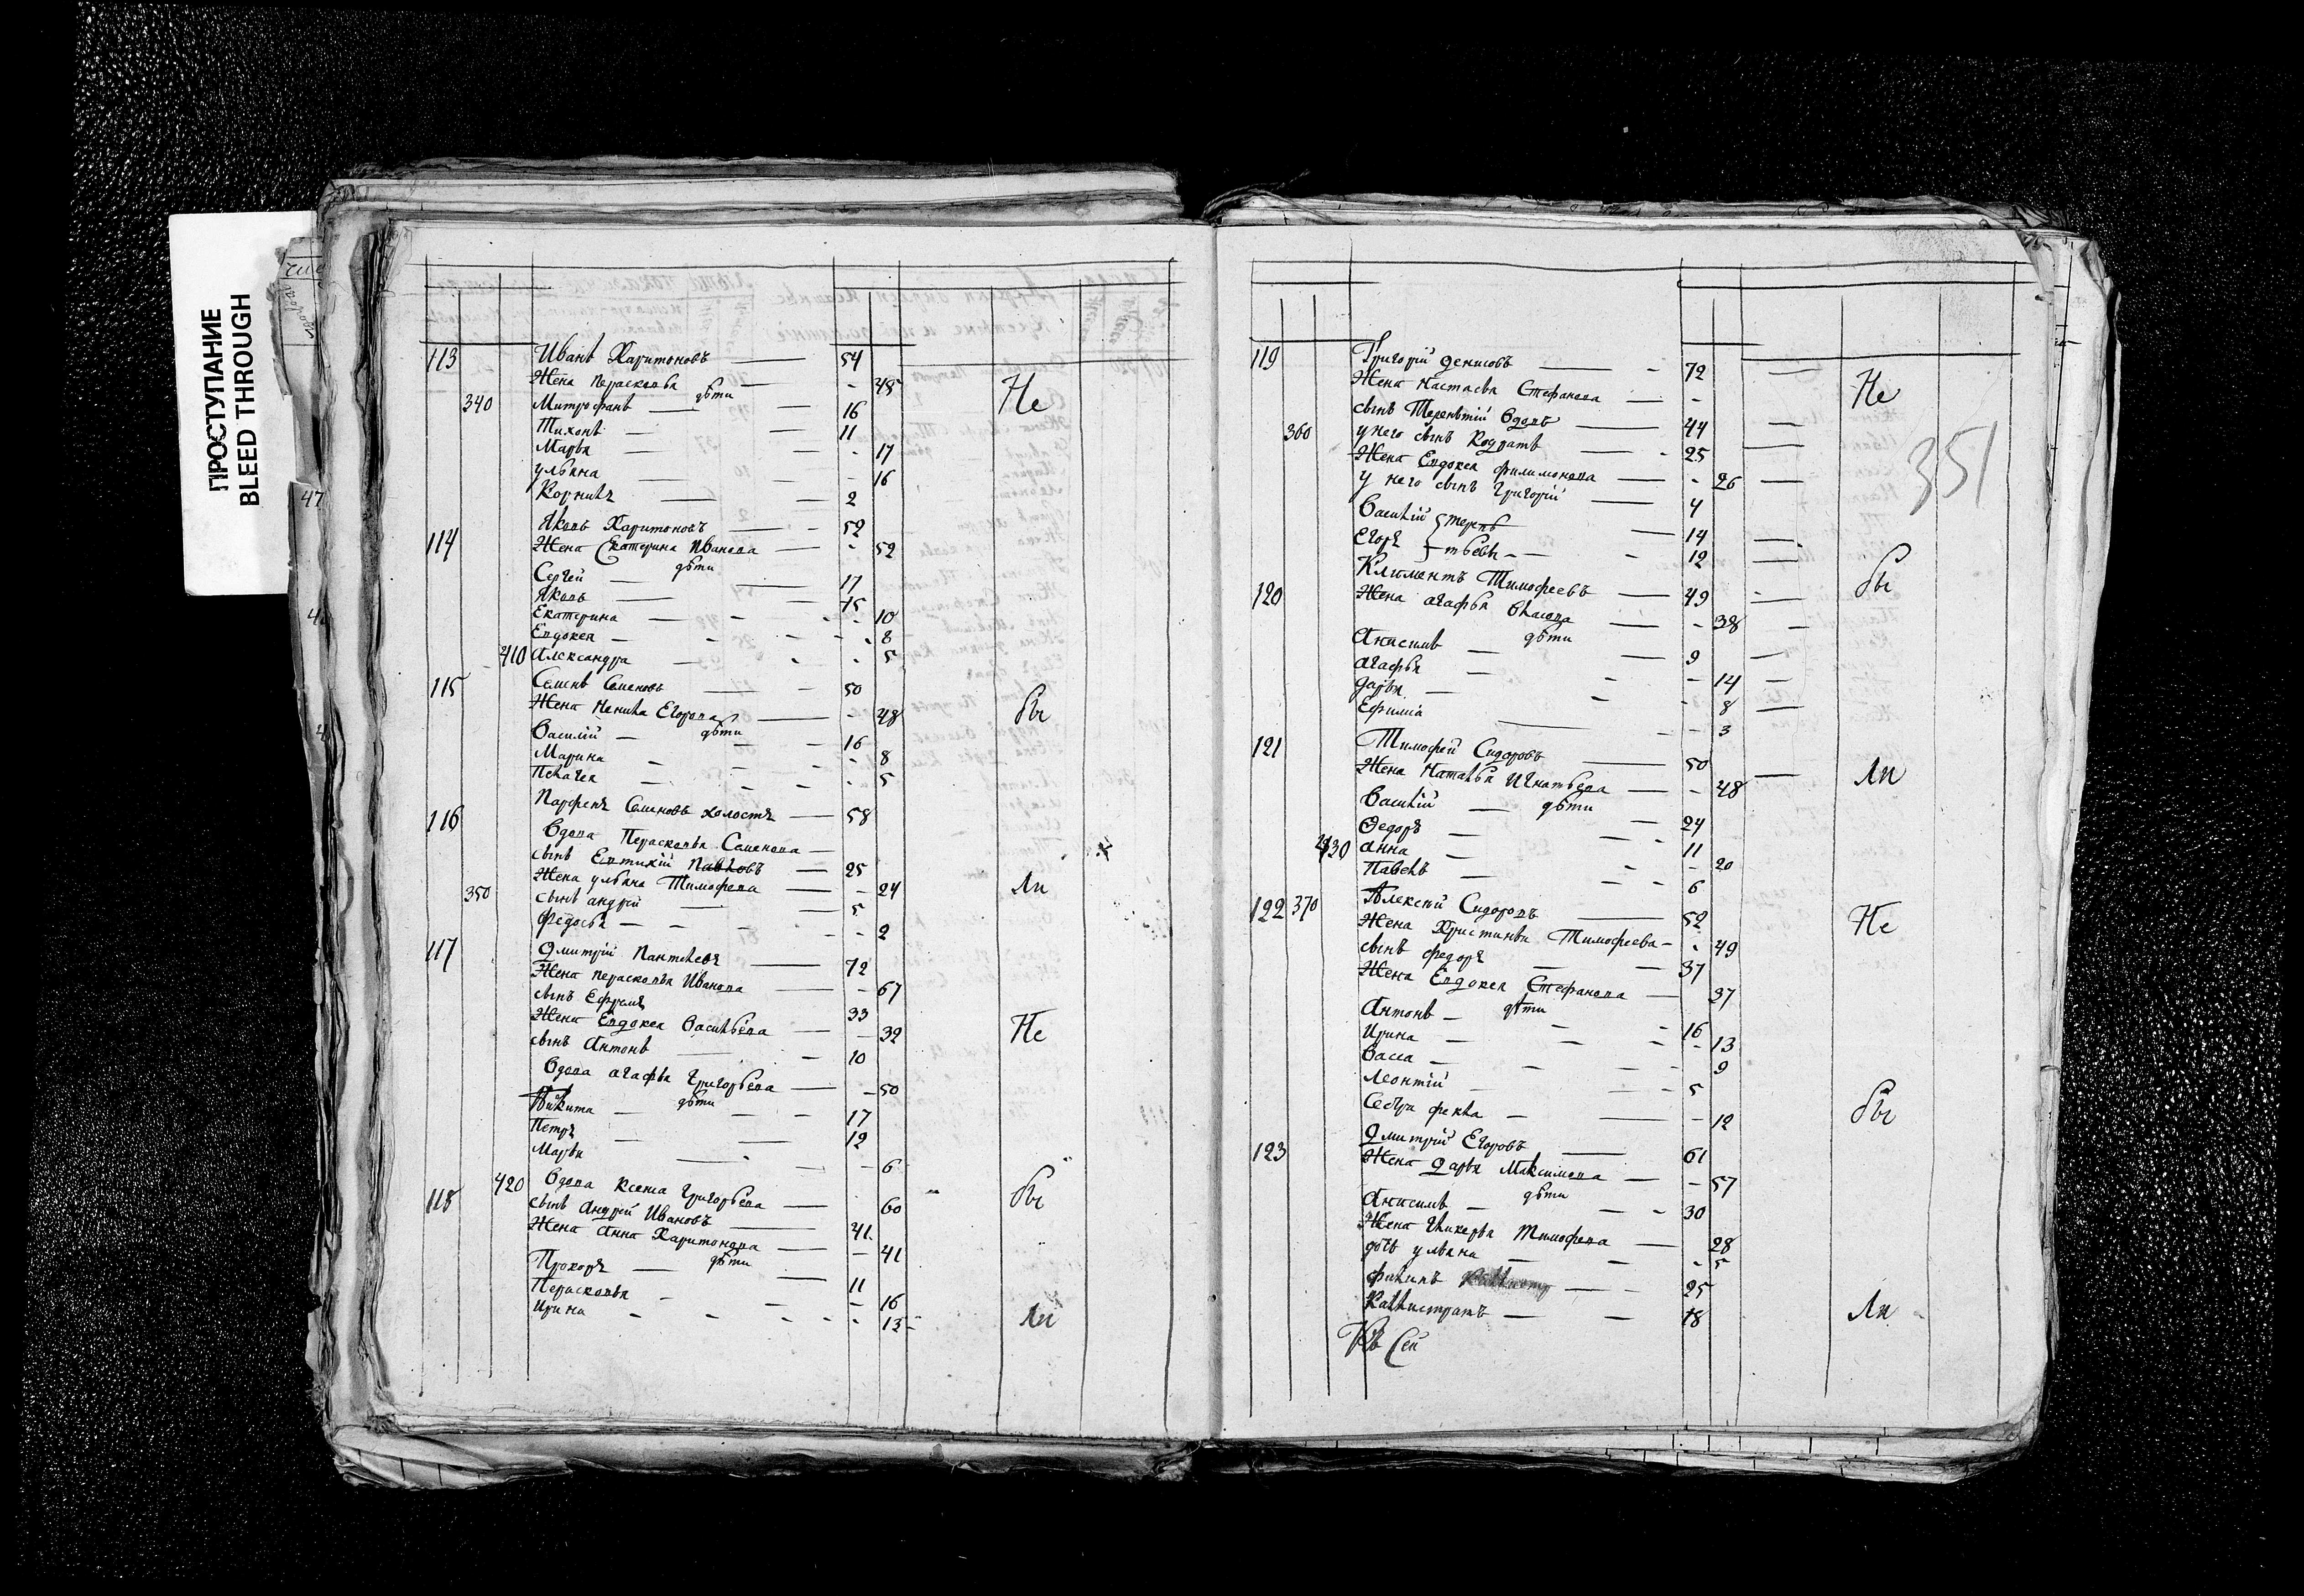 ПРОСТУПАНИЕ
BLEED THROUGH
47
113 Иванъ Харитоновъ 54
Жена Пераскопва 45 Не
дѣти
340 Митрофанъ 16
Тихонъ 11
Марья 17
Ульяна 16
Корнилъ 2
114 Яковъ Харитоновъ 52
Жена Екатерина Иванова 52
дѣти
Сергей 17
Яковъ 15
Екатерина 10
Евдокея 8
410 Александра 5
115 Семенъ Семеновъ 50
Жена Ненила Егорова 48 бы
дѣти
Василій 16
Марина 8
Пелагея 5
116 Парфенъ Семеновъ холостъ 58
Вдова Перасковья Семенова
сынъ Евтихій Павловъ 25
Жена Ульяна Тимофева 24 ли
350 сынъ андрей 5
Федосья 2
117 Дмитрій Пантелевъ 72
Жена перасковья Иванова 67
сынъ Ефремъ 33
Жена Евдокея Васильева 32 Не
сынъ Антонъ 10
Вдова агафья Григорьева 50
дѣти
Никита 17
Петръ 12
Марья 6
118 420 Вдова Ксенья Григорьева 60 бы
сынъ Андрей Ивановъ 41
Жена Анна Харитонова 41
дѣти
Прохоръ 11
Перасковья 16
Ирина 13 ли
119 Григорій Денисовъ 72
Жена Настасья Стефанова Не
сынъ Терентій Вдовъ 44
360 у него сынъ Кодратъ 25
351
Жена Евдокея филимонова 26
у него сынъ Григорій 4
Василій терен 14
Егоръ тьевы 12
120 Климентъ Тимофеевъ 49 бы
Жена агафья Власова 38
дѣти
Анисимъ 9
агафья 14
дарья 8
Ефимія 3
121 Тимофей Сидоровъ 50
Жена Наталья Игнатьева 48 ли
дѣти
Василій 24
Федоръ 11
430 анна 20
Павелъ 6
122 370 Алексей Сидоровъ 52 Не
Жена Христинья Тимофеева 49
сынъ федоръ 37
Жена Евдокея Стефанова 37
дѣти
Антонъ 16
Ирина 13
Васса 9
Леонтій 5
Сестра фекла 12 бы
123 Дмитрій Егоровъ 61
Жена Дарья Максимова 57
дѣти
Анисимъ 30
Жена Гликерья Тимофева 28
дочь ульяна 5
филипъ 25
Каллистратъ 18 ли
Къ Сей